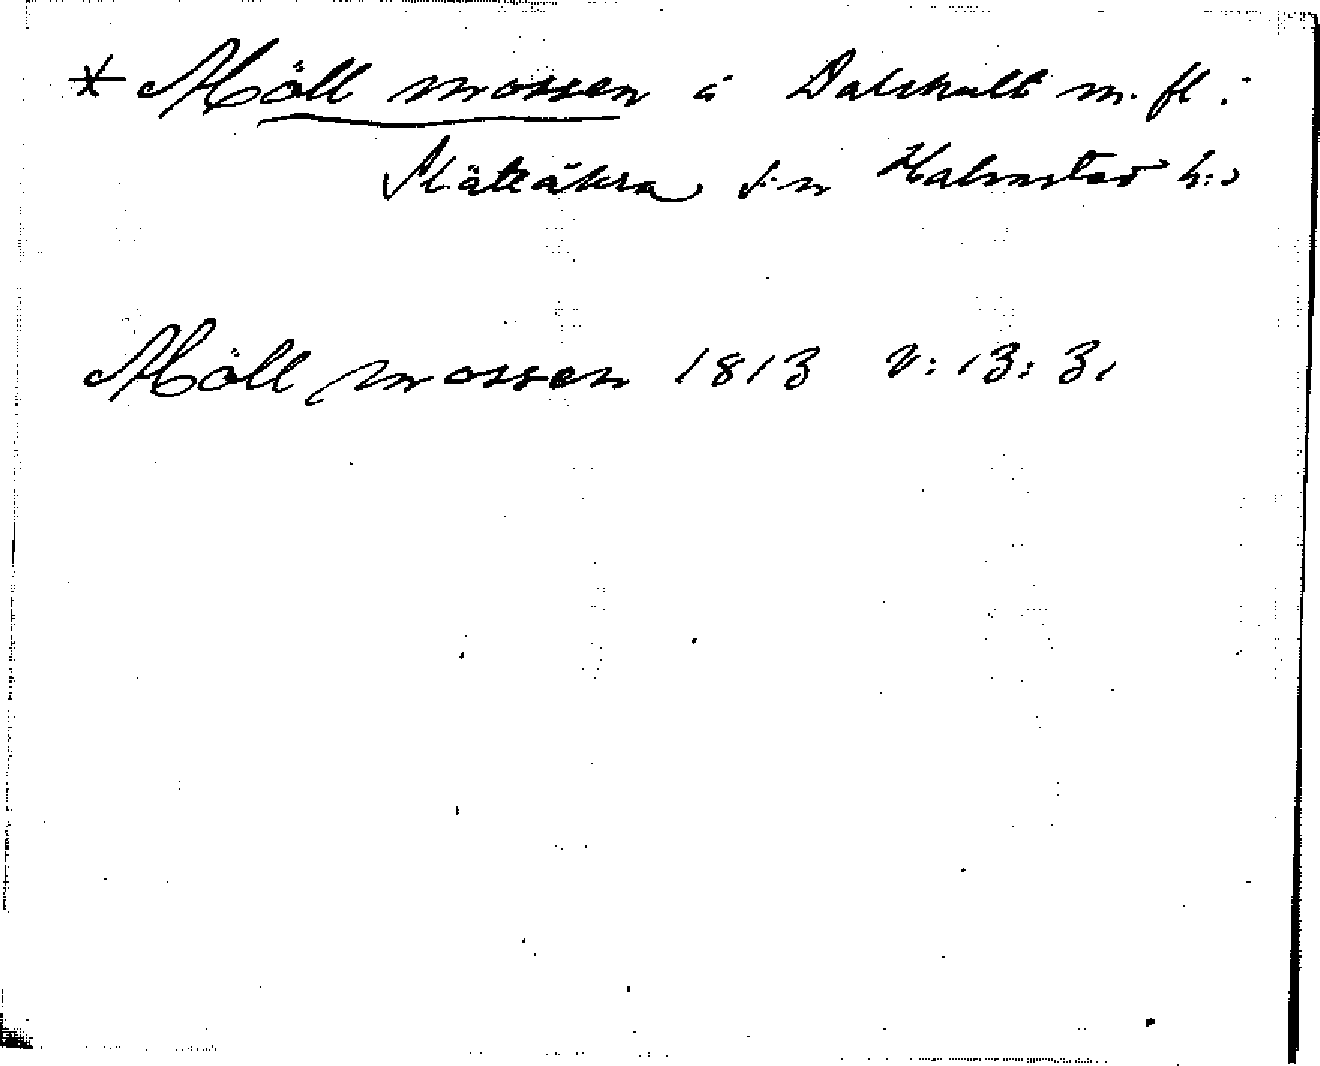 * Möll mossen å Dalshult m. fl. i
Slättåkra s:n Halmstad h:d
Möll mossen 1813 V: 13: 31